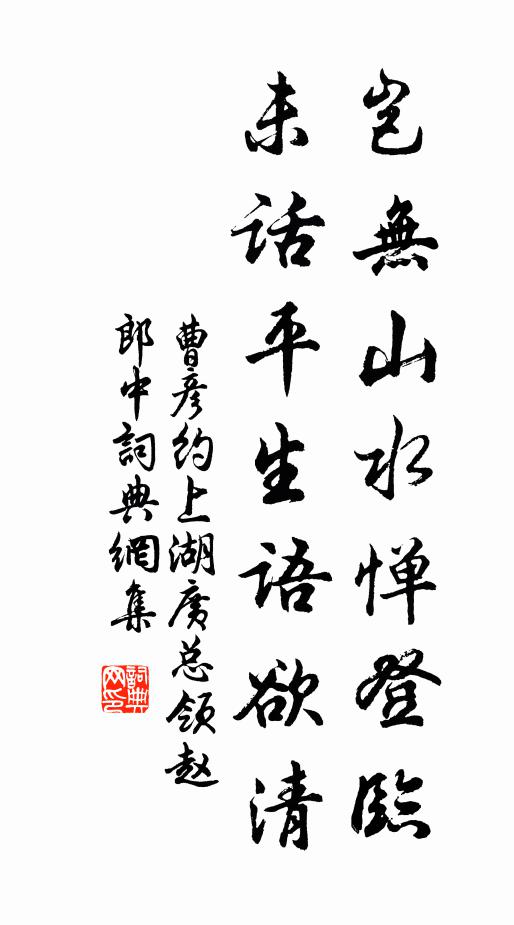 岂無山水惮登臨
未話平生語欲清
曹彦约上湖廣总领赵
郎中詞典網集
詞典
网印